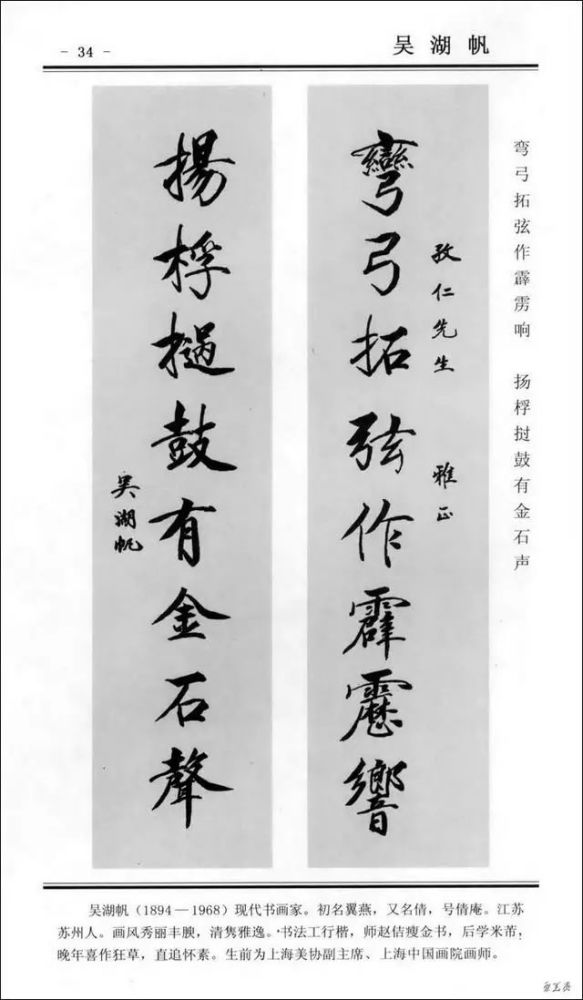 - 34 -
吴湖帆
彎弓拓弦作霹靂響
孜仁先生 雅正
揚桴撾鼓有金石聲
吴湖帆
弯弓拓弦作霹雳响 扬桴挝鼓有金石声
吴湖帆(1894—1968)现代书画家。初名翼燕,又名倩,号倩庵。江苏
苏州人。画风秀丽丰腴,清隽雅逸。书法工行楷,师赵佶瘦金书,后学米芾,
晚年喜作狂草,直追怀素。生前为上海美协副主席、上海中国画院画师。